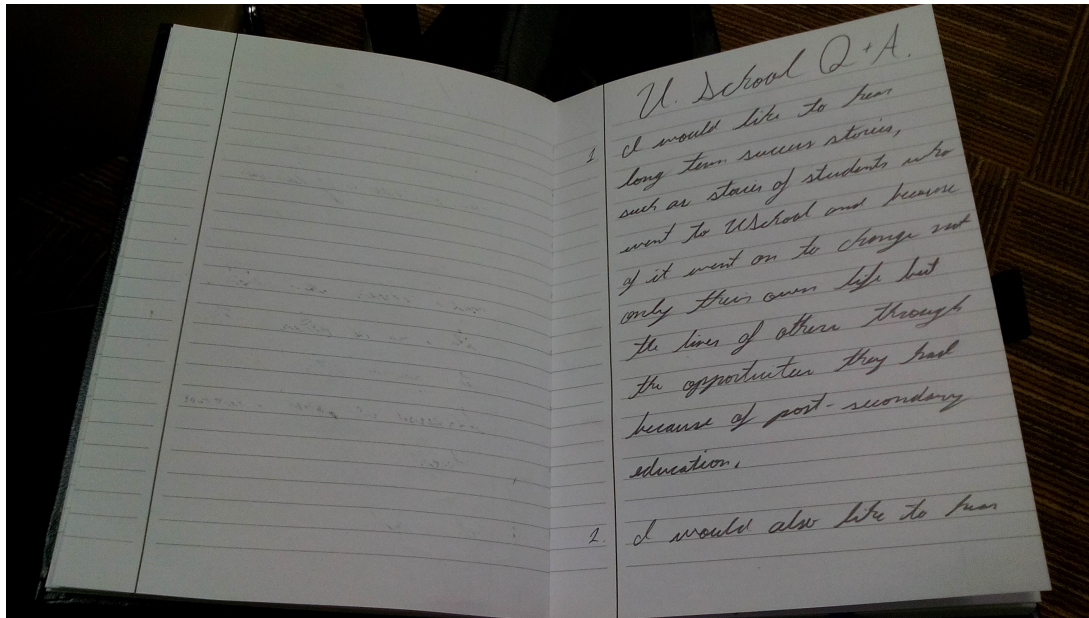 U. School Q + A.
1. I would like to hear
long term success stories,
such as stories of students who
went to USchool and because
of it went on to change not
only their own life but
the lives of others through
the opportunities they had
because of post-secondary
education.
2. I would also like to hear